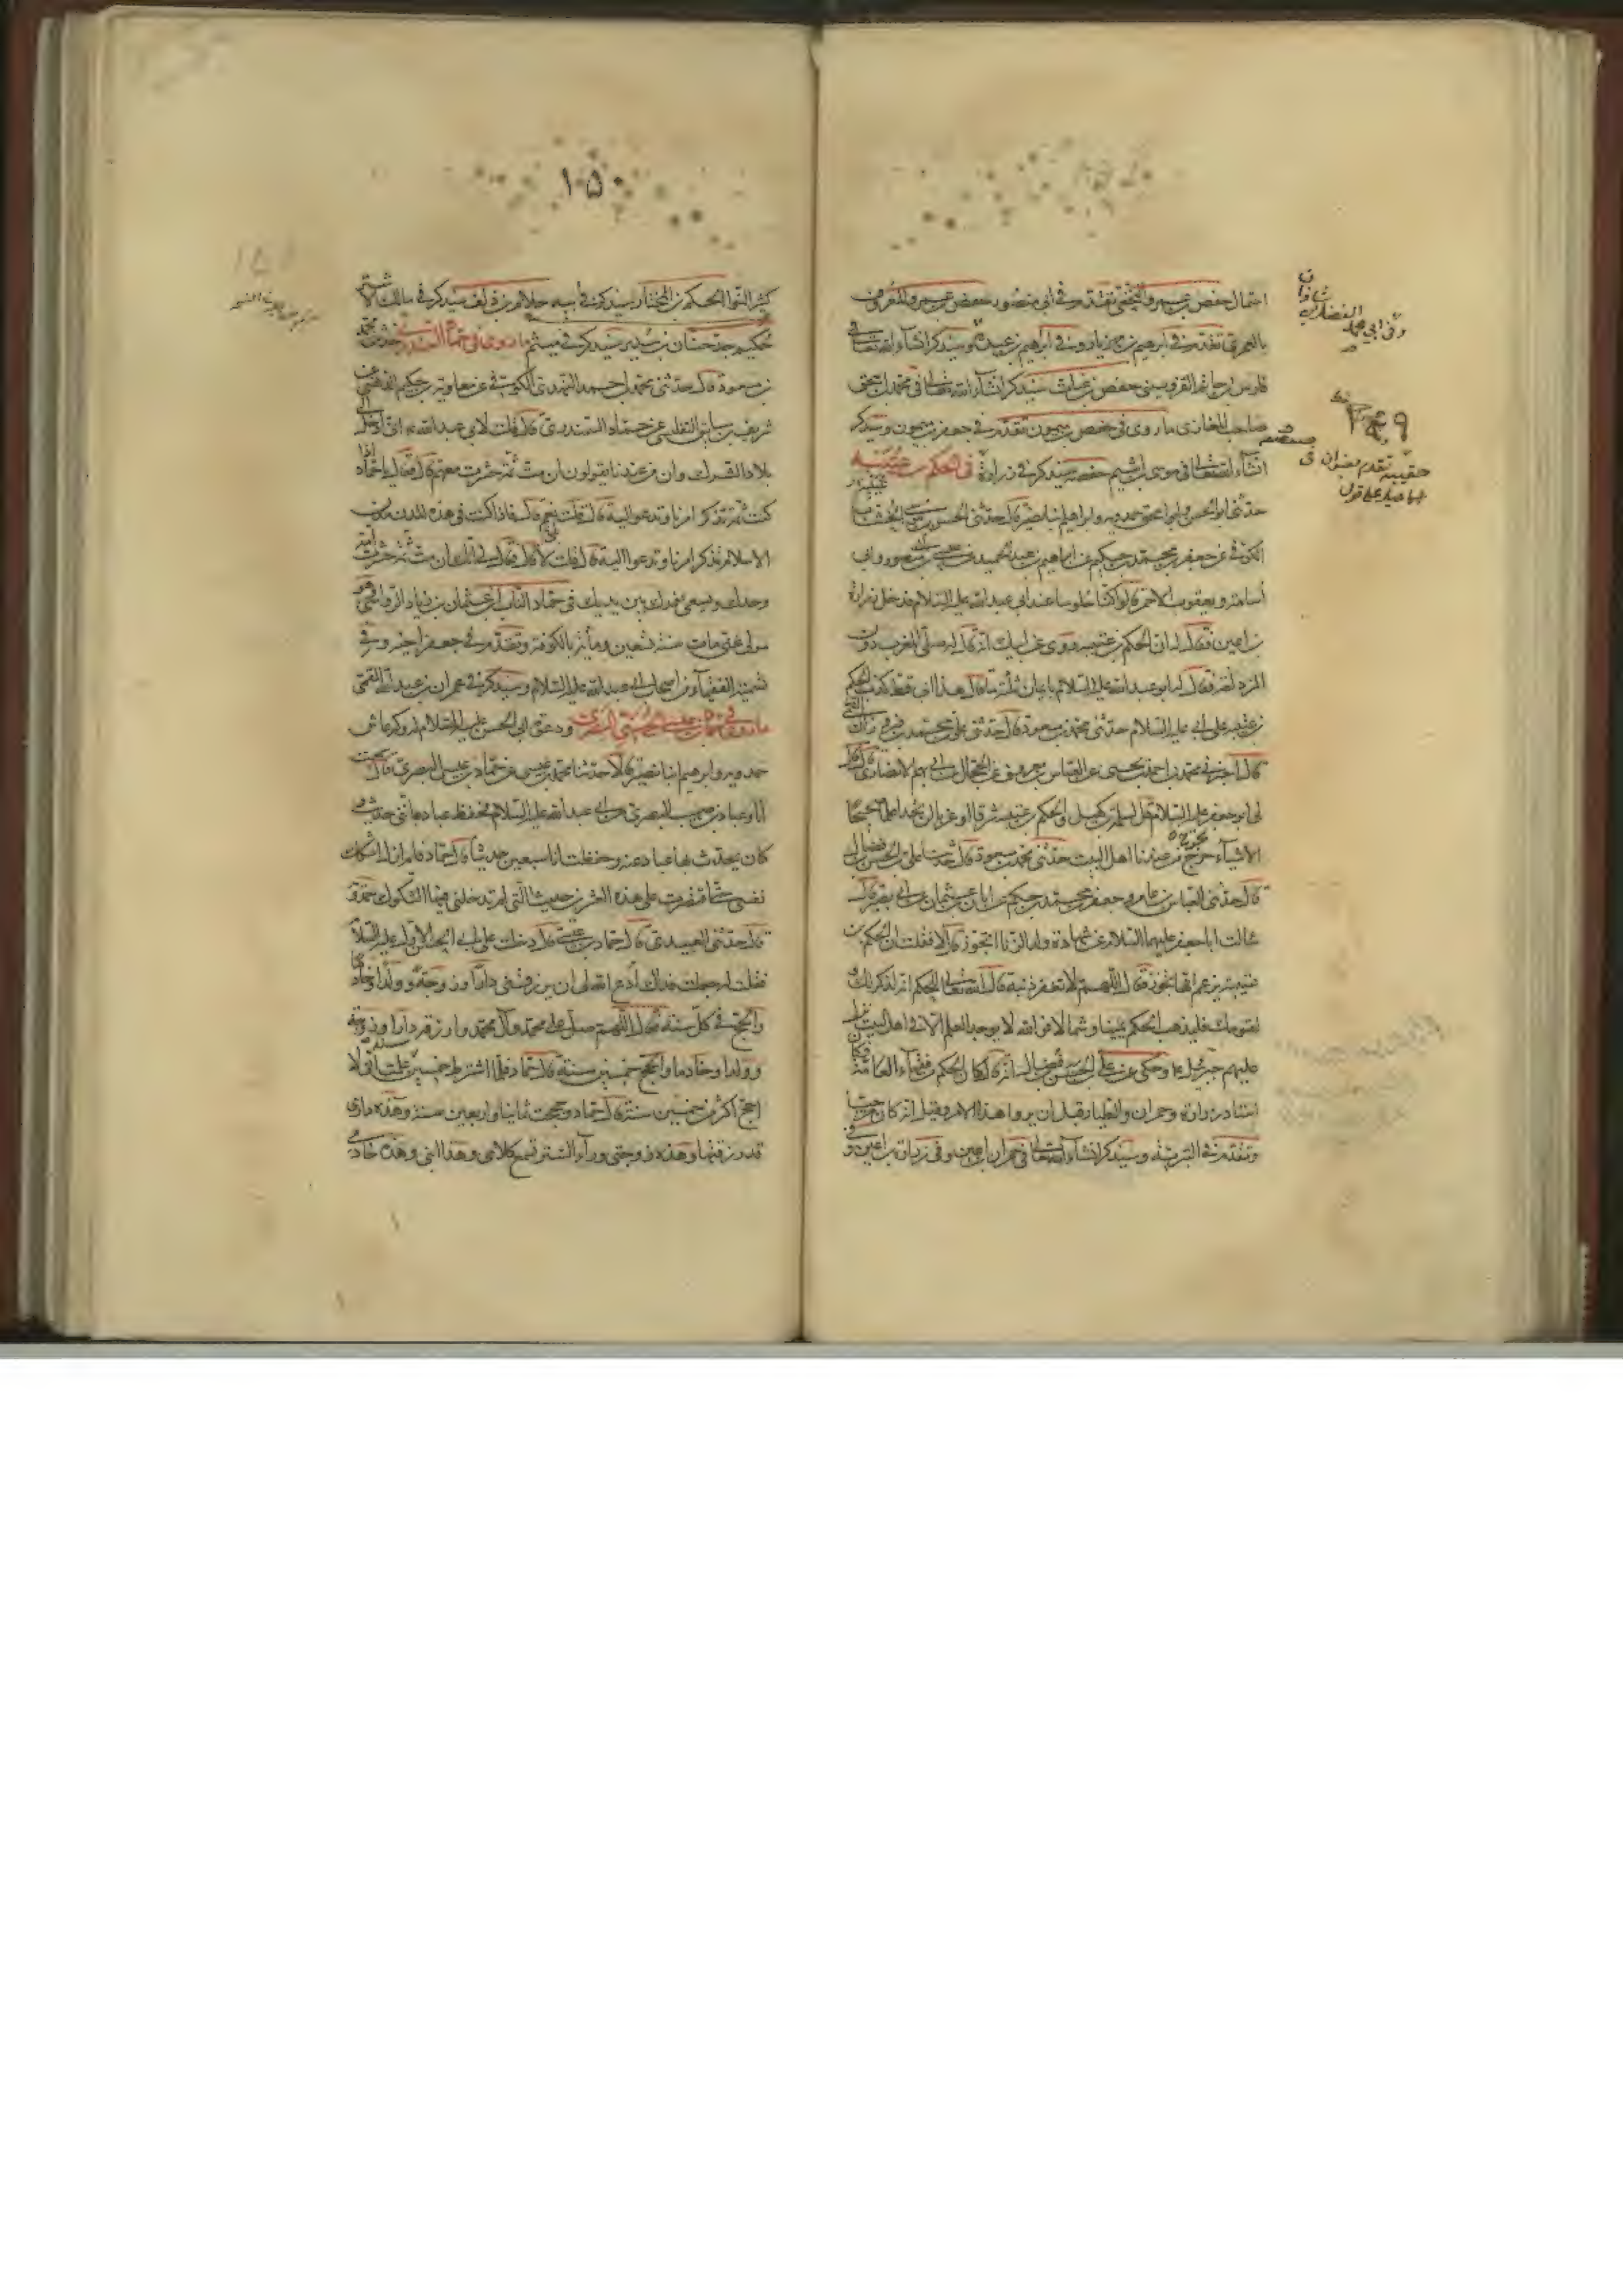 احتمال حفص بن عمرو النخعي تقدم في ابي منصور حفص بن عمرو المعروف
بالعمري تقدم في ابرهيم بن مهزيار وفي ابرهيم بن عبدة وسيذكر انشاء الله تعالى في
فارس بن حاتم القزويني حفص بن غياث سيذكر انشاء الله تعالى في محمد بن اسحق
صاحب المغازى ما روى في حفص بن ميمون تقدم في جعفر بن ميمون وسيذكر
انشاء الله تعالى في موسى بن اشيم حفصه سيذكر في زرارة في الحكم بن عتيبه
حدثني ابو الحسن وابو اسحق حمدويه وابراهيم ابنا نصير قال حدثني الحسن بن موسى الخشاب
الكوفي عن جعفر بن محمد بن حكيم عن ابراهيم بن عبد الحميد عن عيسى بن ابي منصور وابي
اسامة ويعقوب الاحمر قالوا كنا جلوسا عند ابي عبد الله عليه السلام فدخل زرارة
بن اعين فقال له ان الحكم بن عتيبه روى عن ابيك انه قال له صلى المغرب دون
المزدلفة فقال له ابو عبد الله عليه السلام بايمان ثلثة ما قال هذا ابي قط كذب الحكم
بن عتيبه على ابي عليه السلام حدثني محمد بن مسعود قال حدثني علي بن محمد بن فيروزان القمي
قال اخبرني محمد بن احمد بن يحيى عن العباس بن معروف عن الحجال عن ابي مريم الانصاري قال قال
لي ابو جعفر عليه السلام قل لسلمة بن كهيل والحكم بن عتيبه شرقا او غربا لن تجدا علما صحيحا
الا شيئا خرج من عندنا اهل البيت حدثني محمد بن مسعود قال حدثنا علي بن الحسن بن فضال
قال حدثني العباس بن عامر وجعفر بن محمد بن حكيم عن ابان بن عثمان عن ابي بصير قال
سالت ابا جعفر عليهما السلام عن شهادة ولد الزنا اتجوز قال لا فقلت ان الحكم بن
عتيبه يزعم انها تجوز فقال اللهم لا تغفر ذنبه قال الله تعالى للحكم انه لذكر لك و
لقومك فليذهب الحكم يمينا وشمالا فوالله لا يوجد العلم الا في اهل البيت نزل
عليهم جبرئيل ع وحكى عن علي بن الحسن بن فضال انه قال كان الحكم من فقهاء العامة وكان
استاد زرارة وحمران والطيار قبل ان يروا هذا الامر وقيل انه كان مرجئا
وتقدم في البترية وسيذكر انشاء الله تعالى في حمران بن اعين وفي زرارة بن اعين وفي
شاذان
الفضل بن
وفي ابي محمد
حقيبه تقدم بعنوان في
١٥٠
كثير النوا الحكم بن المختار سيذكر في ابيه حلام بن دلف سيذكر في مالك الاشتر
حكيم جد حنان بن سدير سيذكر في ميثم ما روى في حماد السمندري حدثني محمد
بن مسعود قال حدثني محمد بن احمد النهدي الكوفي عن معاوية بن حكيم الدهني عن
شريف بن سابق التفليسي عن حماد السمندري قال قلت لابي عبد الله ع اني ادخل الى
بلاد الشرك وان من عندنا يقولون ان مت ثم حشرت معهم قال فقال لي يا حماد اذا
كنت ثم تذكر امرنا وتدعو اليه قال قلت نعم قال فاذا كنت في هذه المدن مدن
الاسلام تذكر امرنا وتدعوا اليه قال قلت لا قال فقال لي انك ان مت ثم حشرت امة
وحدك ويسعى نورك بين يديك في حماد الناب بن عثمان بن زياد الرواسي
مولى غنى مات سنة تسعين ومائة بالكوفة وتقدم في جعفر اخيه وفي
تسمية الفقهاء من اصحاب ابي عبد الله عليه السلام وسيذكر في عمران بن عبد الله القمي
ما روى في حماد بن عيسى الجهني البصري ودعوة ابي الحسن عليه السلام له وكم عاش
حمدويه وابرهيم ابنا نصير قالا حدثنا محمد بن عيسى عن حماد بن عيسى البصري قال سمعت
انا وعباد بن صهيب البصري من ابي عبد الله عليه السلام فحفظ عباد مأتي حديث و
كان يحدث بها عباد عنه وحفظت انا سبعين حديثا قال حماد فلم ازل اشكك
نفسي حتى اقتصرت على هذه العشرين حديثا التي لم تدخلني فيها الشكوك حمدويه
قال حدثني العبيدي قال حماد بن عيسى قال دخلت على ابي الحسن الاول عليه السلام
فقلت له جعلت فداك ادع الله لي ان يرزقني دارا وزوجة وولدا وخادما
والحج في كل سنة فقال اللهم صل على محمد وآل محمد وارزقه دارا وزوجة
وولدا وخادما والحج خمسين سنة قال حماد فلما اشترط خمسين علمت اني لا
احج اكثر من خمسين سنة قال حماد وحججت ثمانيا واربعين سنة وهذه داري
قد رزقتها وهذه زوجتي وراء الستر تسمع كلامي وهذا ابني وهذه خادمي